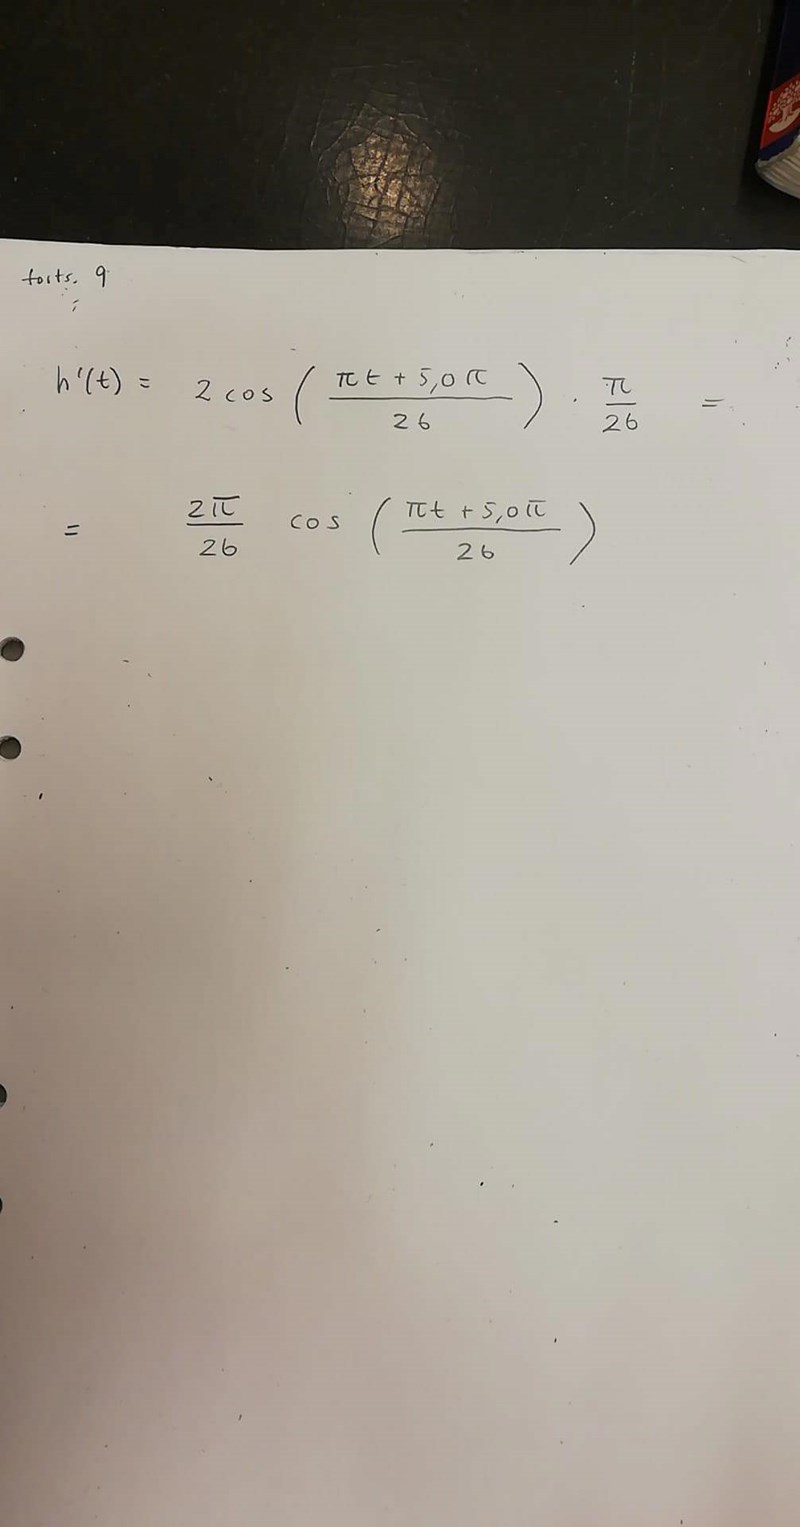 forts. 9
h'(t) = 2 cos ( (πt + 5,0π) / 26 ) · π/26 =
= 2π/26 cos ( (πt + 5,0π) / 26 )